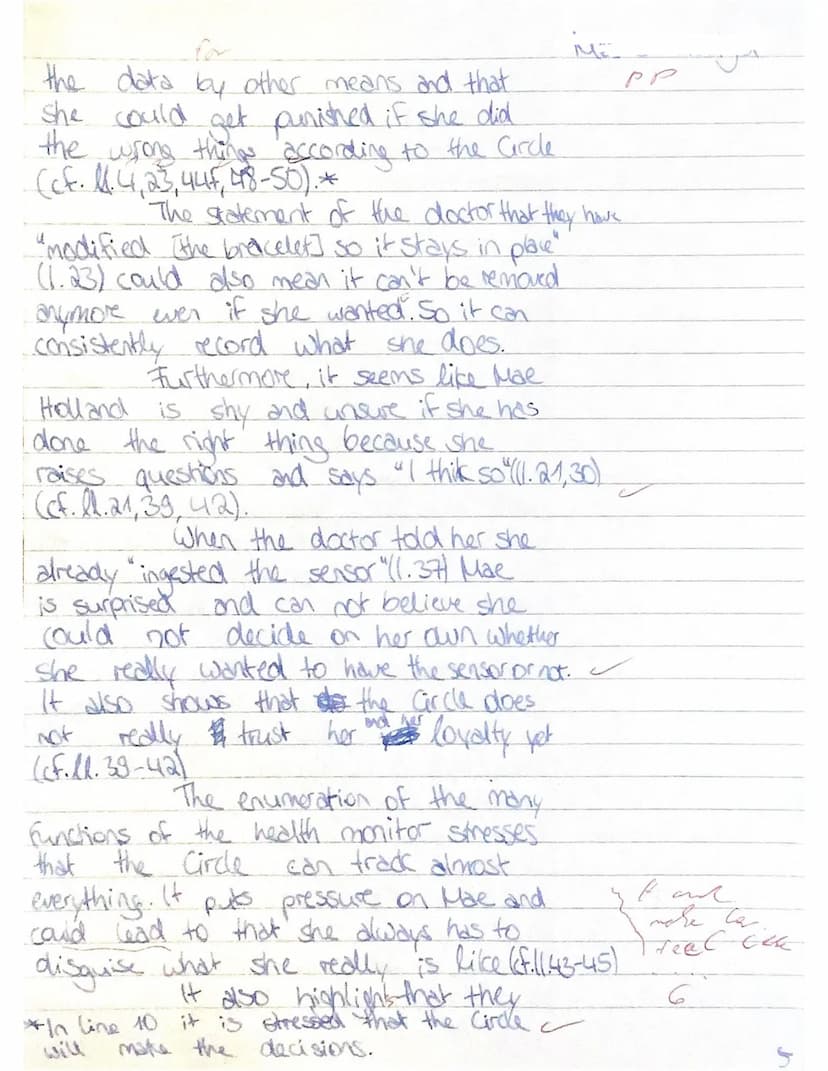 the data by other means and that
PP
she could get punished if she did
the wrong things according to the Circle
(cf. ll. 4, 23, 44f, 48-50).*
The statement of the doctor that they have
"modified [the bracelet] so it stays in place"
(l. 23) could also mean it can't be removed
anymore even if she wanted. So it can
consistently record what she does.
Furthermore, it seems like Mae
Holland is shy and unsure if she has
done the right thing because she
raises questions and says "I thik so" (l. 21, 30)
(cf. ll. 21, 39, 42).
When the doctor told her she
already "ingested the sensor" (l. 37) Mae
is surprised and can not believe she
could not decide on her own whether
she really wanted to have the sensor or not.
It also shows that the Circle does
not really trust her and her loyalty yet
(cf. ll. 39-42)
The enumeration of the many
functions of the health monitor stresses
that the Circle can track almost
everything. It puts pressure on Mae and
could lead to that she always has to
disguise what she really is like (cf. ll. 43-45)
It also highlights that they
6
*In line 10 it is stressed that the Circle
will make the decisions.
5